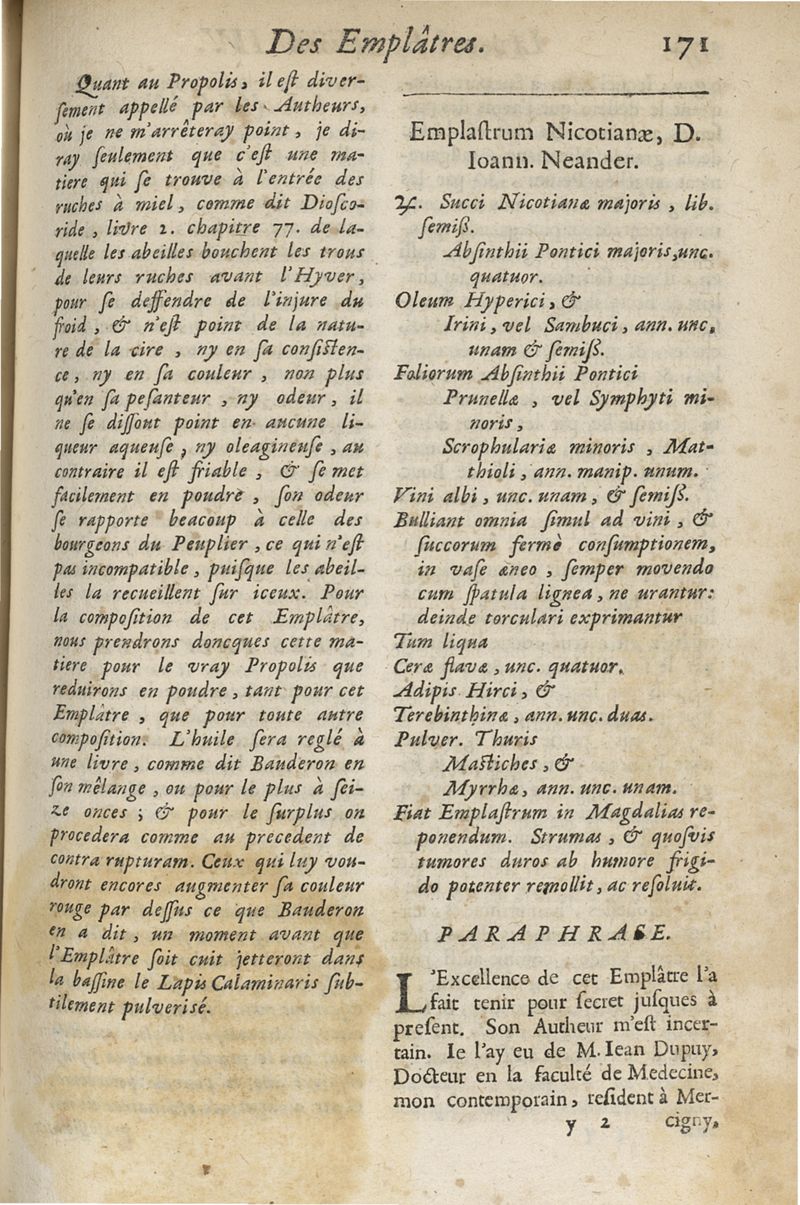 Des Emplâtres. 171
Quant au Propolis, il eſt diver-
ſement appellé par les Autheurs,
où je ne m'arrêteray point, je di-
ray ſeulement que c'eſt une ma-
tiere qui ſe trouve à l'entrée des
ruches à miel, comme dit Dioſco-
ride, livre 2. chapitre 77. de la-
quelle les abeilles bouchent les trous
de leurs ruches avant l'Hyver,
pour ſe deffendre de l'injure du
froid, & n'eſt point de la natu-
re de la cire, ny en ſa conſiſten-
ce, ny en ſa couleur, non plus
qu'en ſa peſanteur, ny odeur, il
ne ſe diſſout point en aucune li-
queur aqueuſe, ny oleagineuſe, au
contraire il eſt friable, & ſe met
facilement en poudre, ſon odeur
ſe rapporte beacoup à celle des
bourgeons du Peuplier, ce qui n'eſt
pas incompatible, puiſque les abeil-
les la recueillent ſur iceux. Pour
la compoſition de cet Emplâtre,
nous prendrons doncques cette ma-
tiere pour le vray Propolis que
reduirons en poudre, tant pour cet
Emplâtre, que pour toute autre
compoſition. L'huile ſera reglé à
une livre, comme dit Bauderon en
ſon mêlange, ou pour le plus à ſei-
ze onces; & pour le ſurplus on
procedera comme au precedent de
contra rupturam. Ceux qui luy vou-
dront encores augmenter ſa couleur
rouge par deſſus ce que Bauderon
en a dit, un moment avant que
l'Emplâtre ſoit cuit jetteront dans
la baſſine le Lapis Calaminaris ſub-
tilement pulveriſé.
Emplaſtrum Nicotianæ, D.
Ioann. Neander.
♃. Succi Nicotianæ majoris, lib.
ſemiß.
Abſinthii Pontici majoris, unc.
quatuor.
Oleum Hyperici, &
Irini, vel Sambuci, ann. unc.
unam & ſemiß.
Foliorum Abſinthii Pontici
Prunellæ, vel Symphyti mi-
noris,
Scrophulariæ minoris, Mat-
thioli, ann. manip. unum.
Vini albi, unc. unam, & ſemiß.
Bulliant omnia ſimul ad vini, &
ſuccorum fermè conſumptionem,
in vaſe æneo, ſemper movendo
cum ſpatula lignea, ne urantur:
deinde torculari exprimantur
Tum liqua
Ceræ flavæ, unc. quatuor.
Adipis Hirci, &
Terebinthinæ, ann. unc. duas.
Pulver. Thuris
Maſtiches, &
Myrrhæ, ann. unc. unam.
Fiat Emplaſtrum in Magdalias re-
ponendum. Strumas, & quoſvis
tumores duros ab humore frigi-
do potenter remollit, ac reſoluit.
PARAPHRASE.
L'Excellence de cet Emplâtre l'a
fait tenir pour ſecret juſques à
preſent. Son Autheur m'eſt incer-
tain. Ie l'ay eu de M. Iean Dupuy,
Docteur en la faculté de Medecine,
mon contemporain, reſident à Mer-
y 2 cigny,